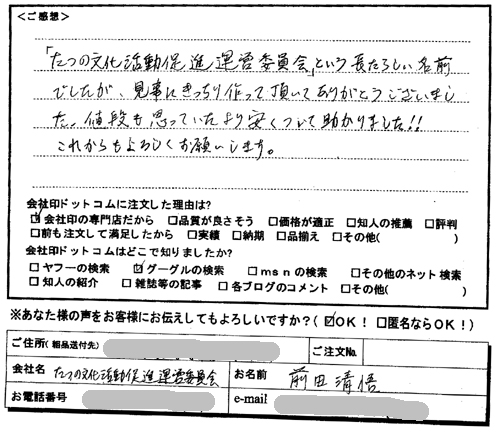 <ご感想>
「たつの文化活動促進運営委員会」という長たらしい名前
でしたが、見事にきっちり作って頂いてありがとうございまし
た。値段も思っていたより安くついて助かりました!!
これからもよろしくお願いします。
会社印ドットコムに注文した理由は?
☑会社印の専門店だから □品質が良さそう □価格が適正 □知人の推薦 □評判
□前も注文して満足したから □実績 □納期 □品揃え □その他( )
会社印ドットコムはどこで知りましたか?
□ヤフーの検索 ☑グーグルの検索 □msnの検索 □その他のネット検索
□知人の紹介 □雑誌等の記事 □各ブログのコメント □その他( )
※あなた様の声をお客様にお伝えしてもよろしいですか?(☑OK! □匿名ならOK!)
ご住所(粗品送付先) ご注文No.
会社名 たつの文化活動促進運営委員会 お名前 前田清悟
お電話番号 e-mail